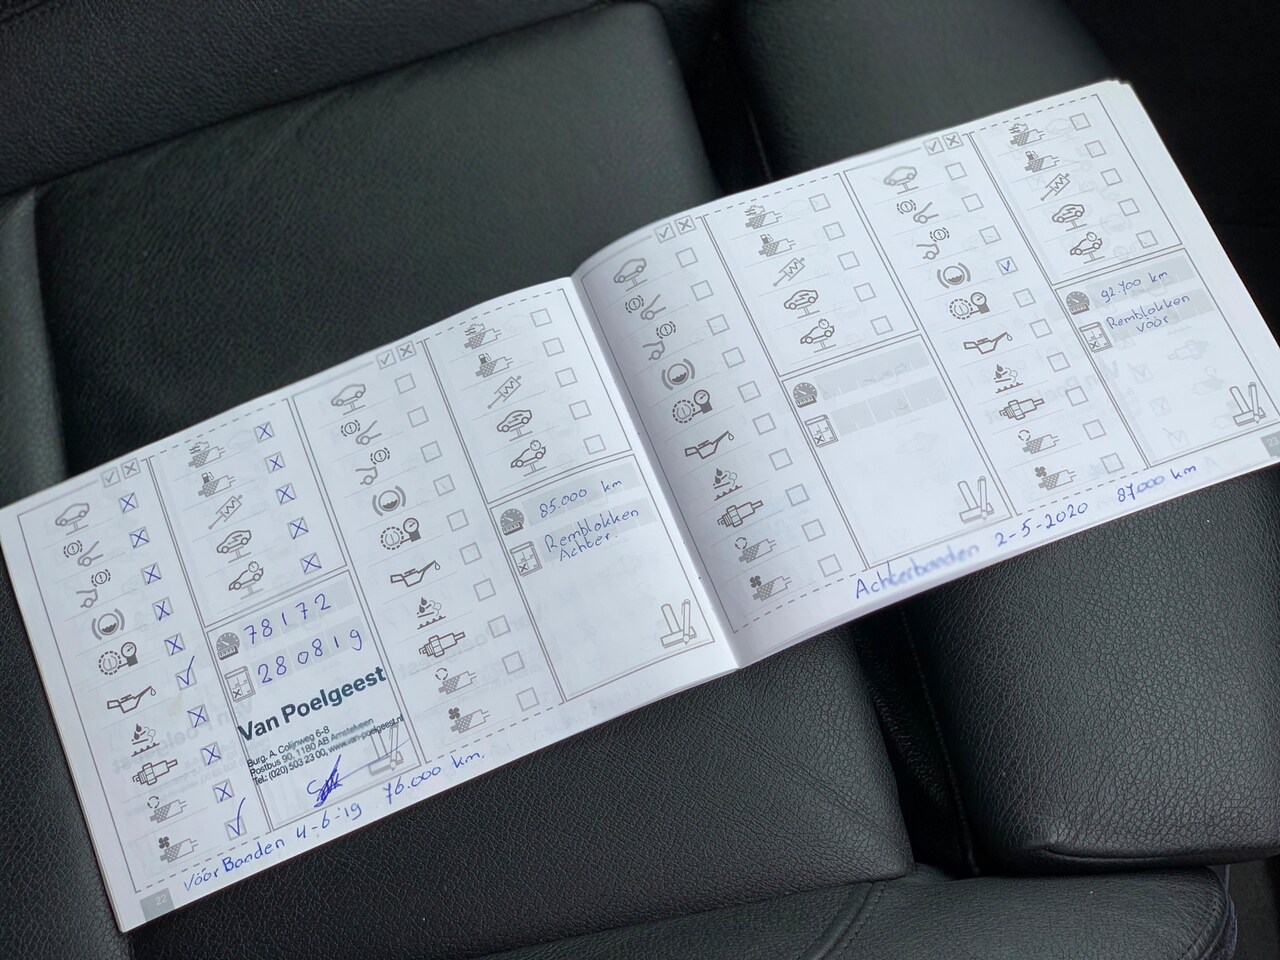 78172
280819
Van Poelgeest
Burg. A. Colijnweg 6-8
Postbus 90, 1180 AB Amstelveen
Tel.: (020) 503 23 00, www.van-poelgeest.nl
Vóór Banden 4-6-'19 76.000 km.
22
85.000 km
Remblokken
Achter.
92.700 km
Remblokken
vóór
Achterbanden 2-5-2020 87.000 km